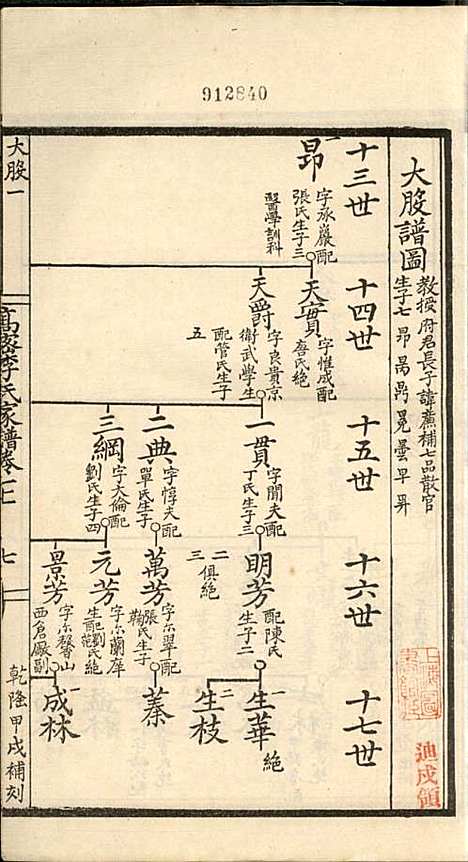 912840
大股譜圖
教授府君長子諱薦補七品散官
生子七昂禺昺冕曇早昇
十三世
十四世
十五世
十六世
十七世
一
昂
字承巖配
張氏生子三
醫學訓科
天賓
字惟成配
唐氏絕
天爵
字良貴京
衛武學生
配管氏生子
五
一貫
字閒夫配
丁氏生子三
二典
字惇夫配
單氏生子
三綱
字大倫配
劉氏生子四
明芳
配陳氏
生子二
二
三
俱絕
萬芳
字尔翠配
張氏生子
元芳
字尔蘭庠
生配劉氏絕
景芳
字尔馨山
西倉廠副
一
生華
絕
二
生枝
蓁
一
成林
大股一
高密李氏家譜卷
七
乾隆甲戌補刻
迪戍領